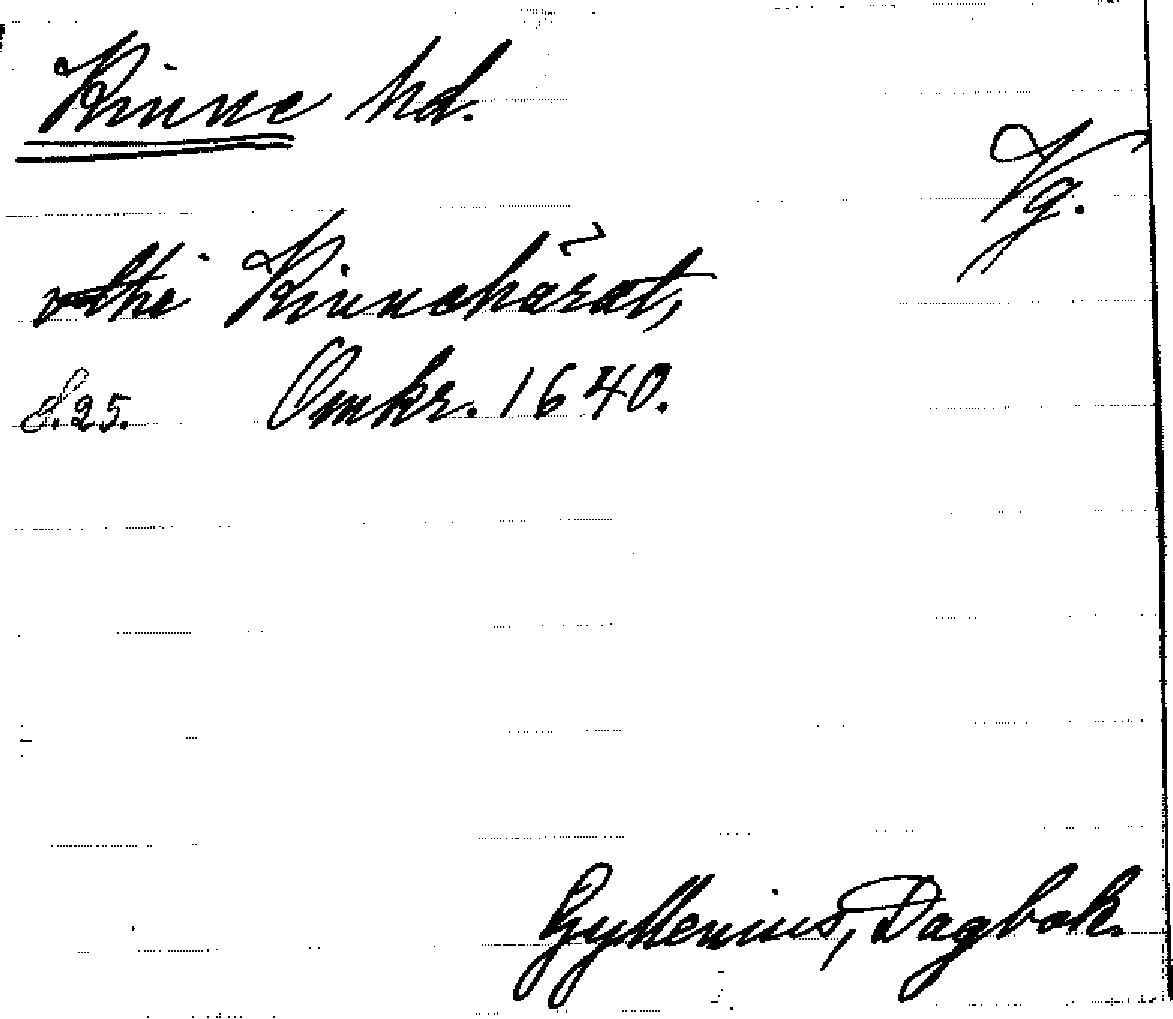 Kinne hd.
Vg.
vthi Kinnehãrat,
S. 25. Omkr. 1640.
Gyllenius, Dagbok.